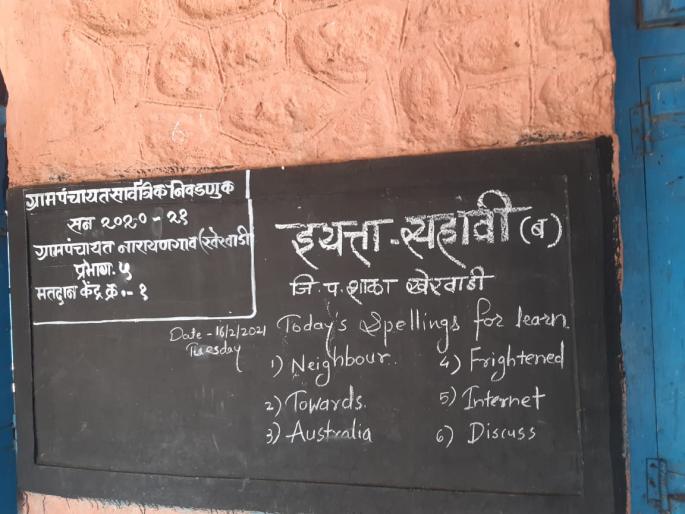 ग्रामपंचायत सार्वत्रिक निवडणुक
सन २०२० - २१
ग्रामपंचायत नारायणगाव (खेरवाडी)
प्रभाग. ५
मतदान केंद्र क्र.- १
इयत्ता - सहावी (ब)
जि. प. शाळा खेरवाडी
Date - 16/2/2021
Tuesday
Today's Spellings for learn.
1) Neighbour.
2) Towards.
3) Australia
4) Frightened
5) Internet
6) Discuss